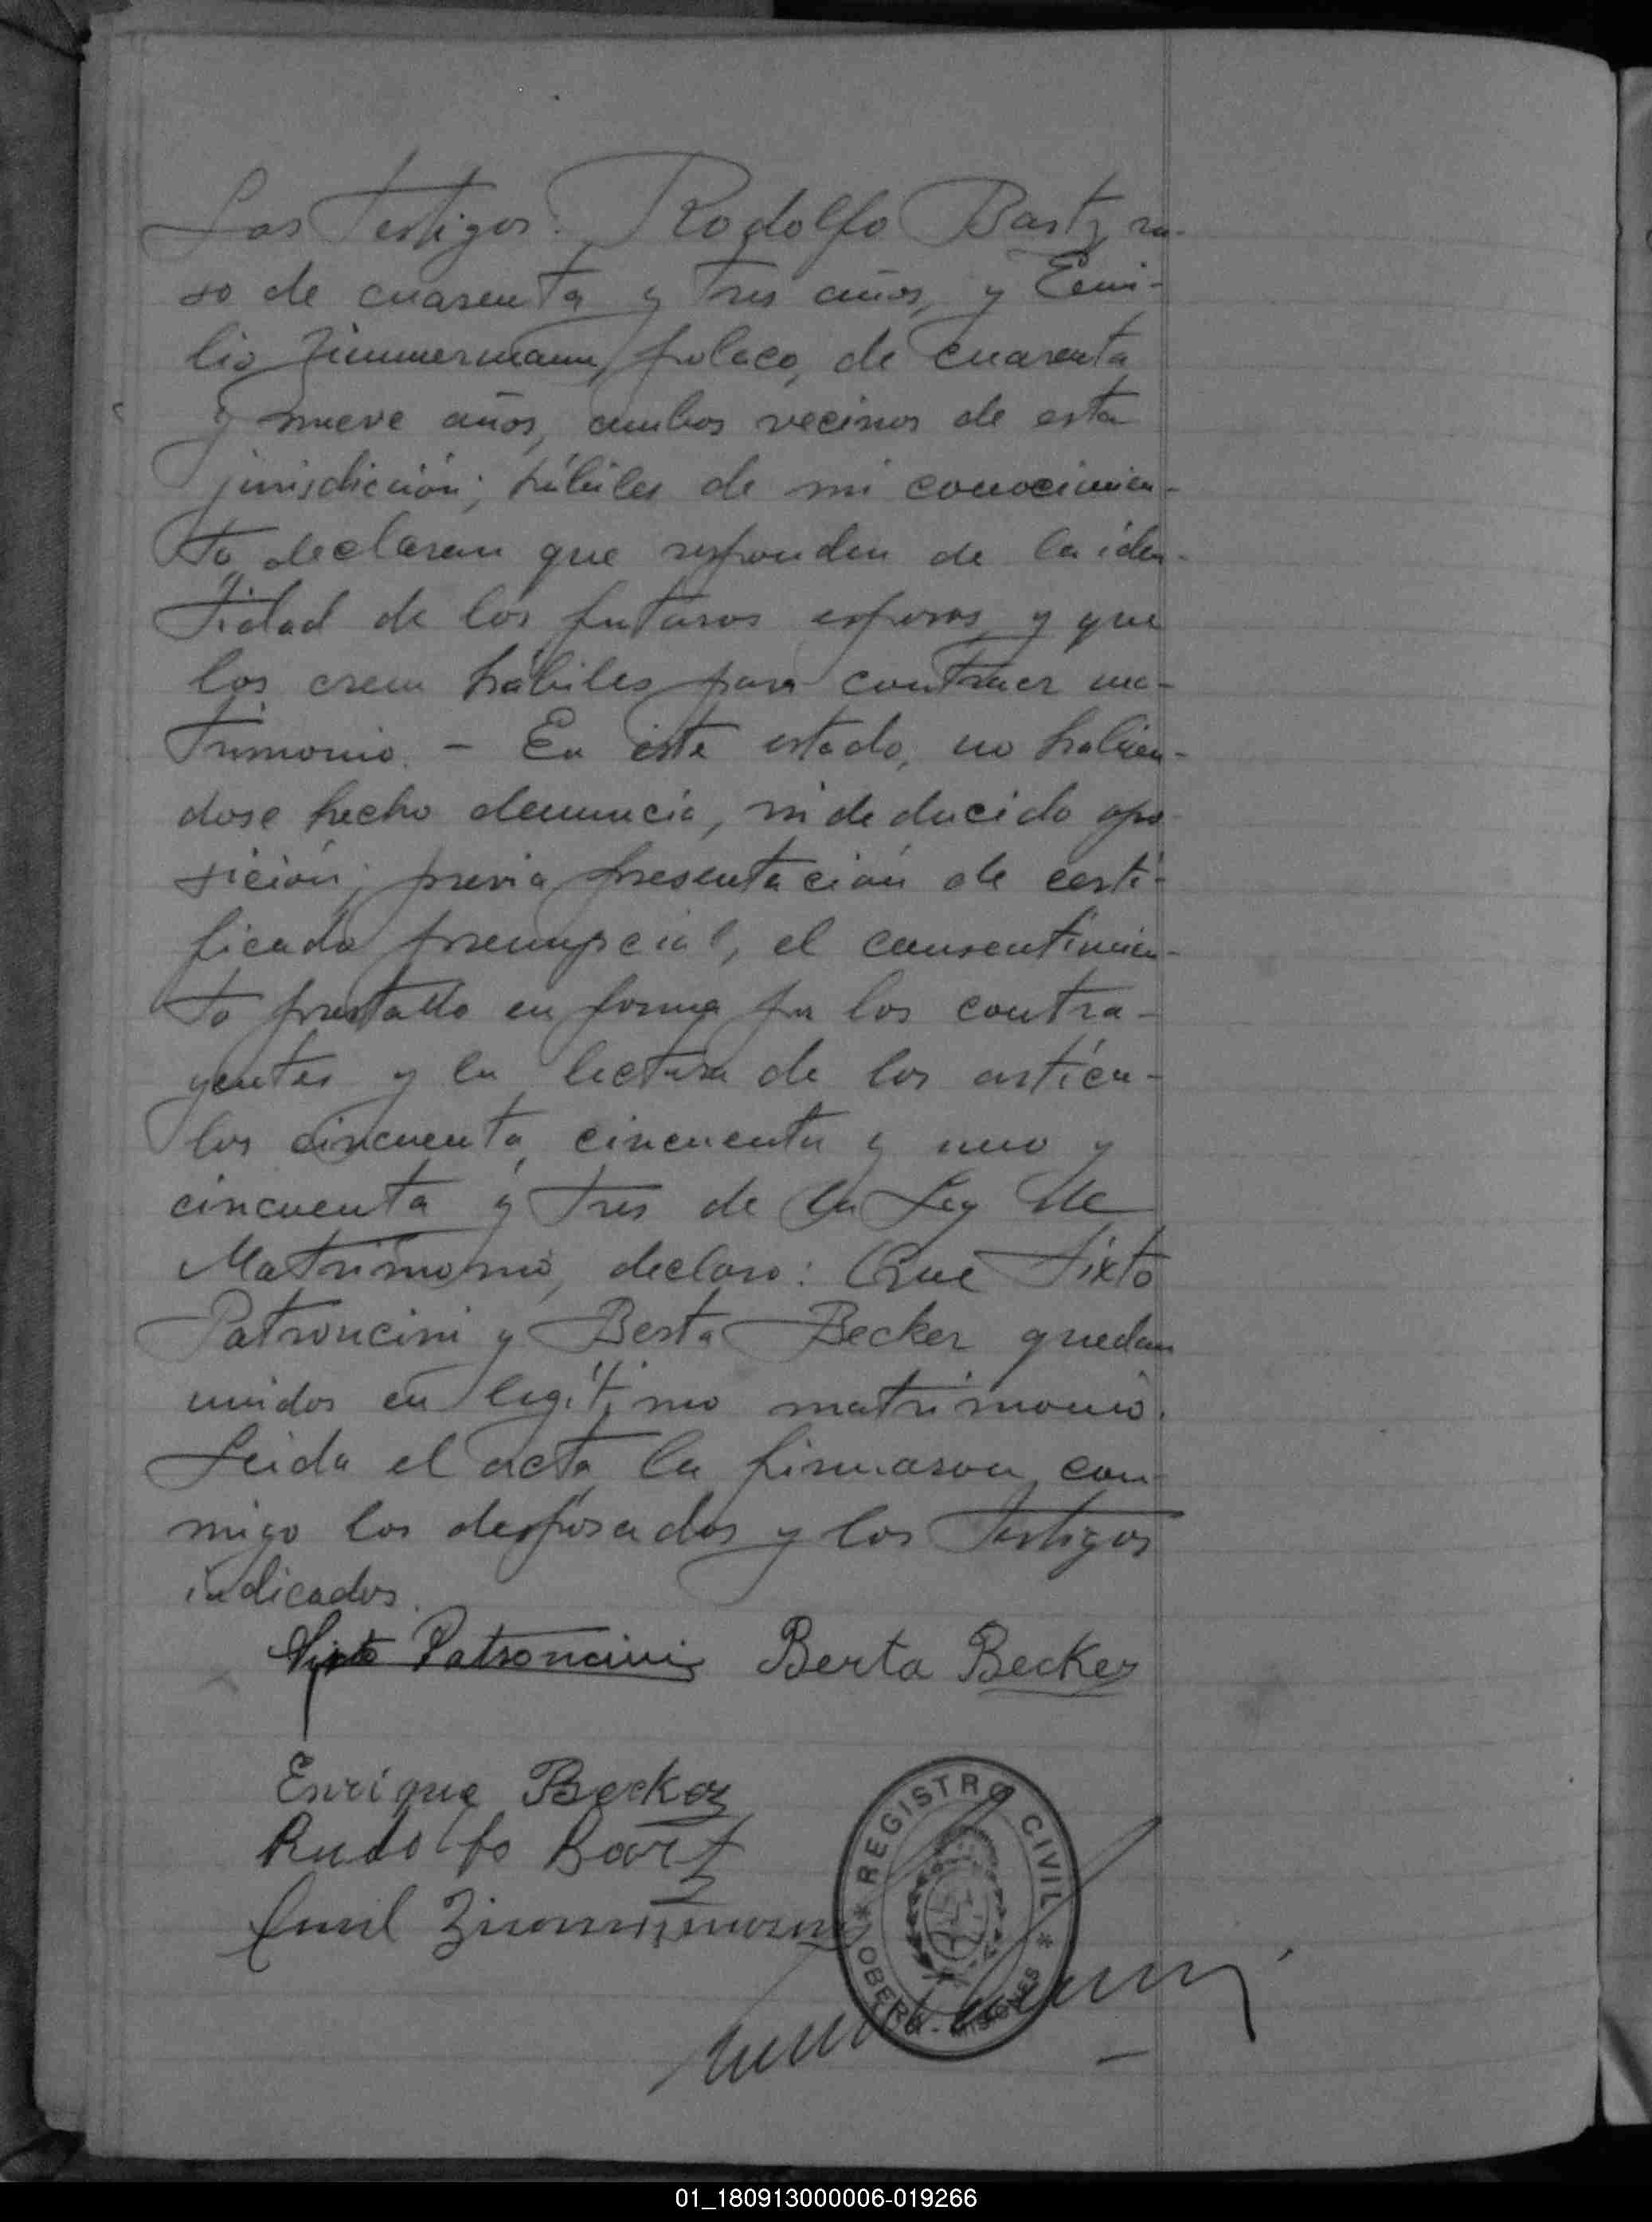 Los Testigos: Rodolfo Bartz, ru-
so de cuarenta y tres años, y Emi-
lio Zimmermann, polaco, de cuarenta
y nueve años, ambos vecinos de esta
jurisdicción; hábiles de mi conocimien-
to declaran que responden de la iden-
tidad de los futuros esposos y que
los creen hábiles para contraer ma-
trimonio. - En este estado, no habien-
dose hecho denuncia, ni deducido opo-
sición; previa presentación de certi-
ficado prenupcial, el consentimien-
to prestado en forma por los contra-
yentes y la lectura de los artícu-
los cincuenta, cincuenta y uno y
cincuenta y tres de la Ley de
Matrimonio, declaro: Que Sixto
Patroncini y Berta Becker quedan
unidos en legítimo matrimonio.
Leida el acta, la firmaron con-
migo los desposados y los Testigos
indicados.
Sixto Patroncini Berta Becker
Enrique Becker
Rudolfo Bartz
Emil Zimmermann
* REGISTRO CIVIL *
OBERÁ - MISIONES
01_180913000006-019266